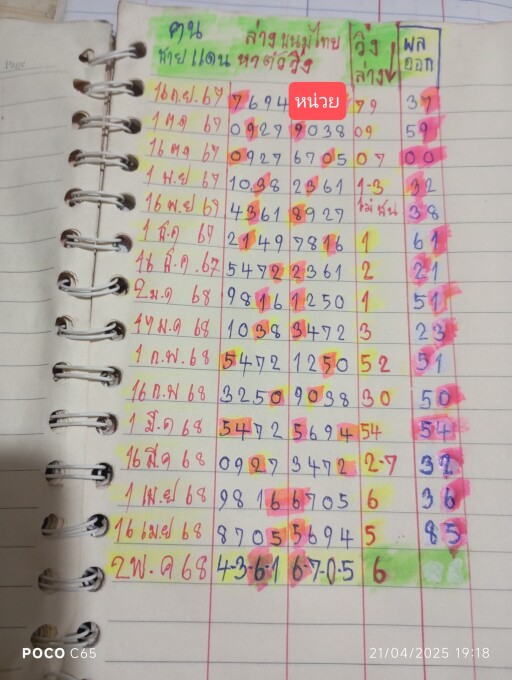 คน ล่างหนุ่มไทย วิ่ง ผล
ชายแดน หาตัววิ่ง ล่าง ออก
หน่วย
16 ก.ย. 67 7694 79 37
1 ตค 67 0927 9038 09 59
16 ตค 67 0927 6705 07 00
1 พ.ย 67 1038 2361 1-3 32
16 พ.ย 67 4361 8927 38
1 ธ.ค 67 2149 7816 1 61
16 ธ.ค.67 5472 2361 2 21
2 ม.ค 68 9816 1250 1 51
17 ม.ค 68 1038 3472 3 23
1 ก.พ. 68 5472 1250 52 51
16 ก.พ 68 3250 9038 30 50
1 มี.ค 68 5472 5694 54 54
16 มี.ค 68 0927 3472 2-7 32
1 เม.ย 68 9816 6705 6 36
16 เม.ย 68 8705 5694 5 85
2 พ.ค 68 4-3-6-1 6-7-0-5 6
POCO C65
21/04/2025 19:18